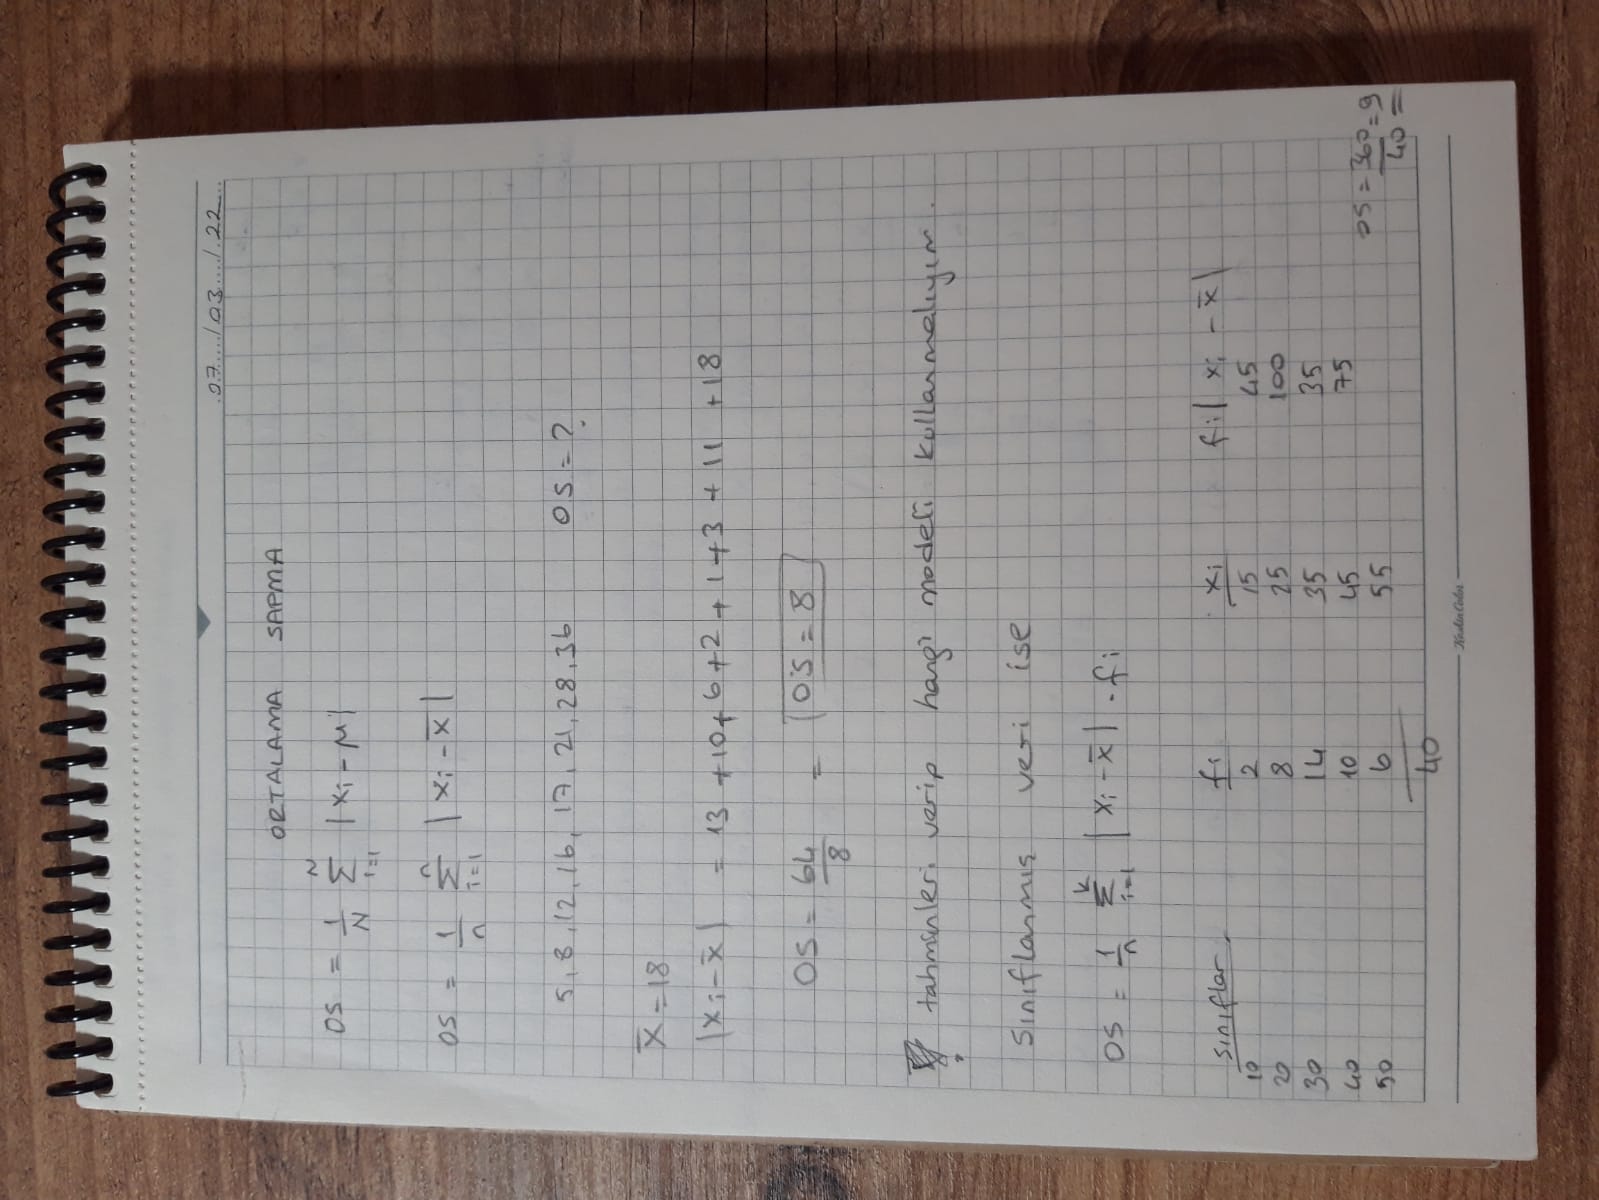 07...../03..../.22...
ORTALAMA SAPMA
OS = 1/N N Σ i=1 |xi - μ|
OS = 1/n n Σ i=1 |xi - x̄|
5,8,12,16,17,21,28,36 OS=?
x̄=18
|xi-x̄| = 13+10+6+2+1+3+11+18
OS= 64/8 = OS=8
? tahminleri verip hangi modeli kullanmalıyım.
Sınıflanmış veri ise
OS = 1/n k Σ i=1 |xi-x̄|.fi
Sınıflar fi xi fi|xi-x̄|
10 2 15 45
20 8 25 100
30 14 35 35
40 10 45 75
50 6 55
40
OS=360/40=9